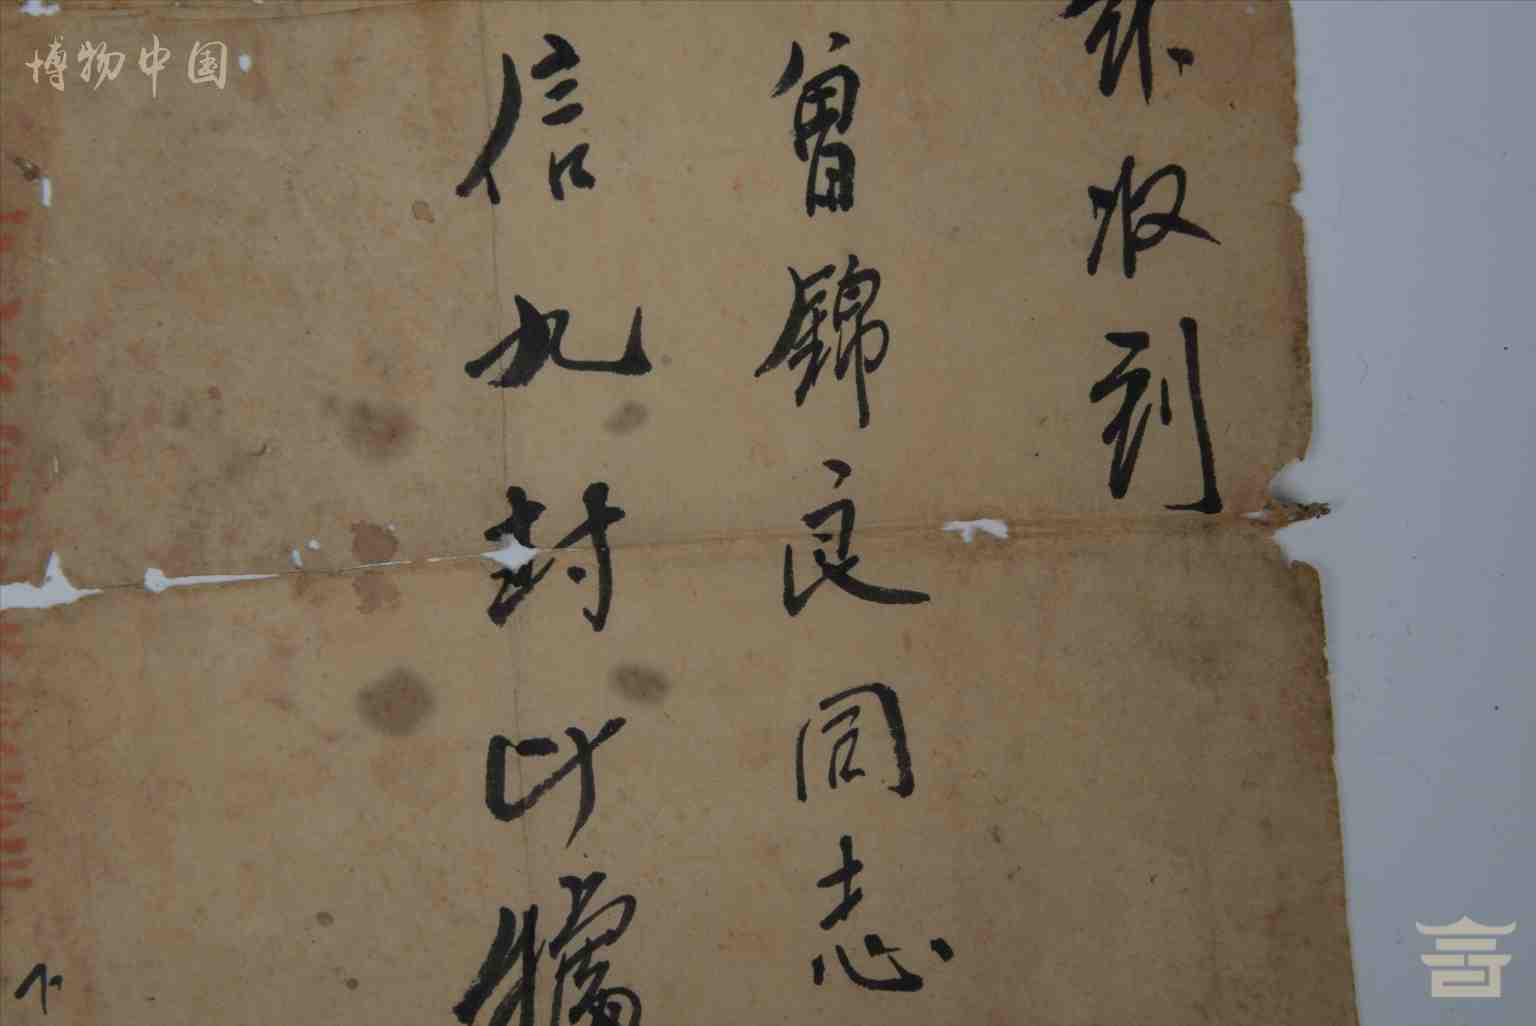 博物中国
收到
曾锦良同志
信九封此據